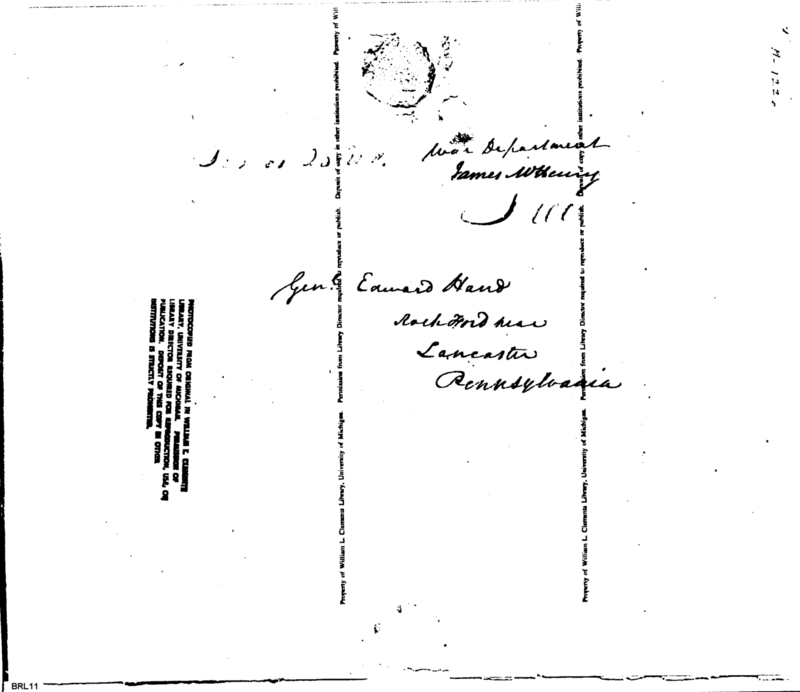 War Department
James McHenry
Genl. Edward Hand
Rock Ford near
Lancaster
Pennsylvania
PHOTOCOPIED FROM ORIGINAL IN WILLIAM L. CLEMENTS
LIBRARY, UNIVERSITY OF MICHIGAN. PERMISSION OF
LIBRARY DIRECTOR REQUIRED FOR REPRODUCTION, USE, OR
PUBLICATION. DEPOSIT OF THIS COPY IN OTHER
INSTITUTIONS IS STRICTLY PROHIBITED.
Property of William L. Clements Library, University of Michigan. Permission from Library Director required to reproduce or publish. Deposit of copy in other institutions prohibited. Property of Will
Property of William L. Clements Library, University of Michigan. Permission from Library Director required to reproduce or publish. Deposit of copy in other institutions prohibited. Property of Will
BRL11